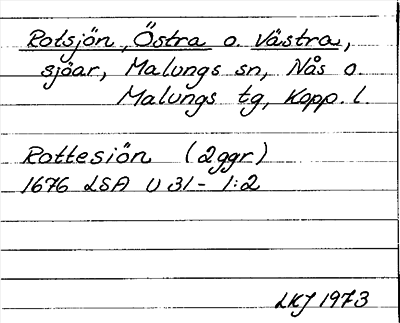 Rotsjön, Östra o. Västra,
sjöar, Malungs sn, Nås o.
Malungs tg, Kopp. l.
Rottesiön (2ggr)
1676 LSA U 31- 1:2
LKJ 1973